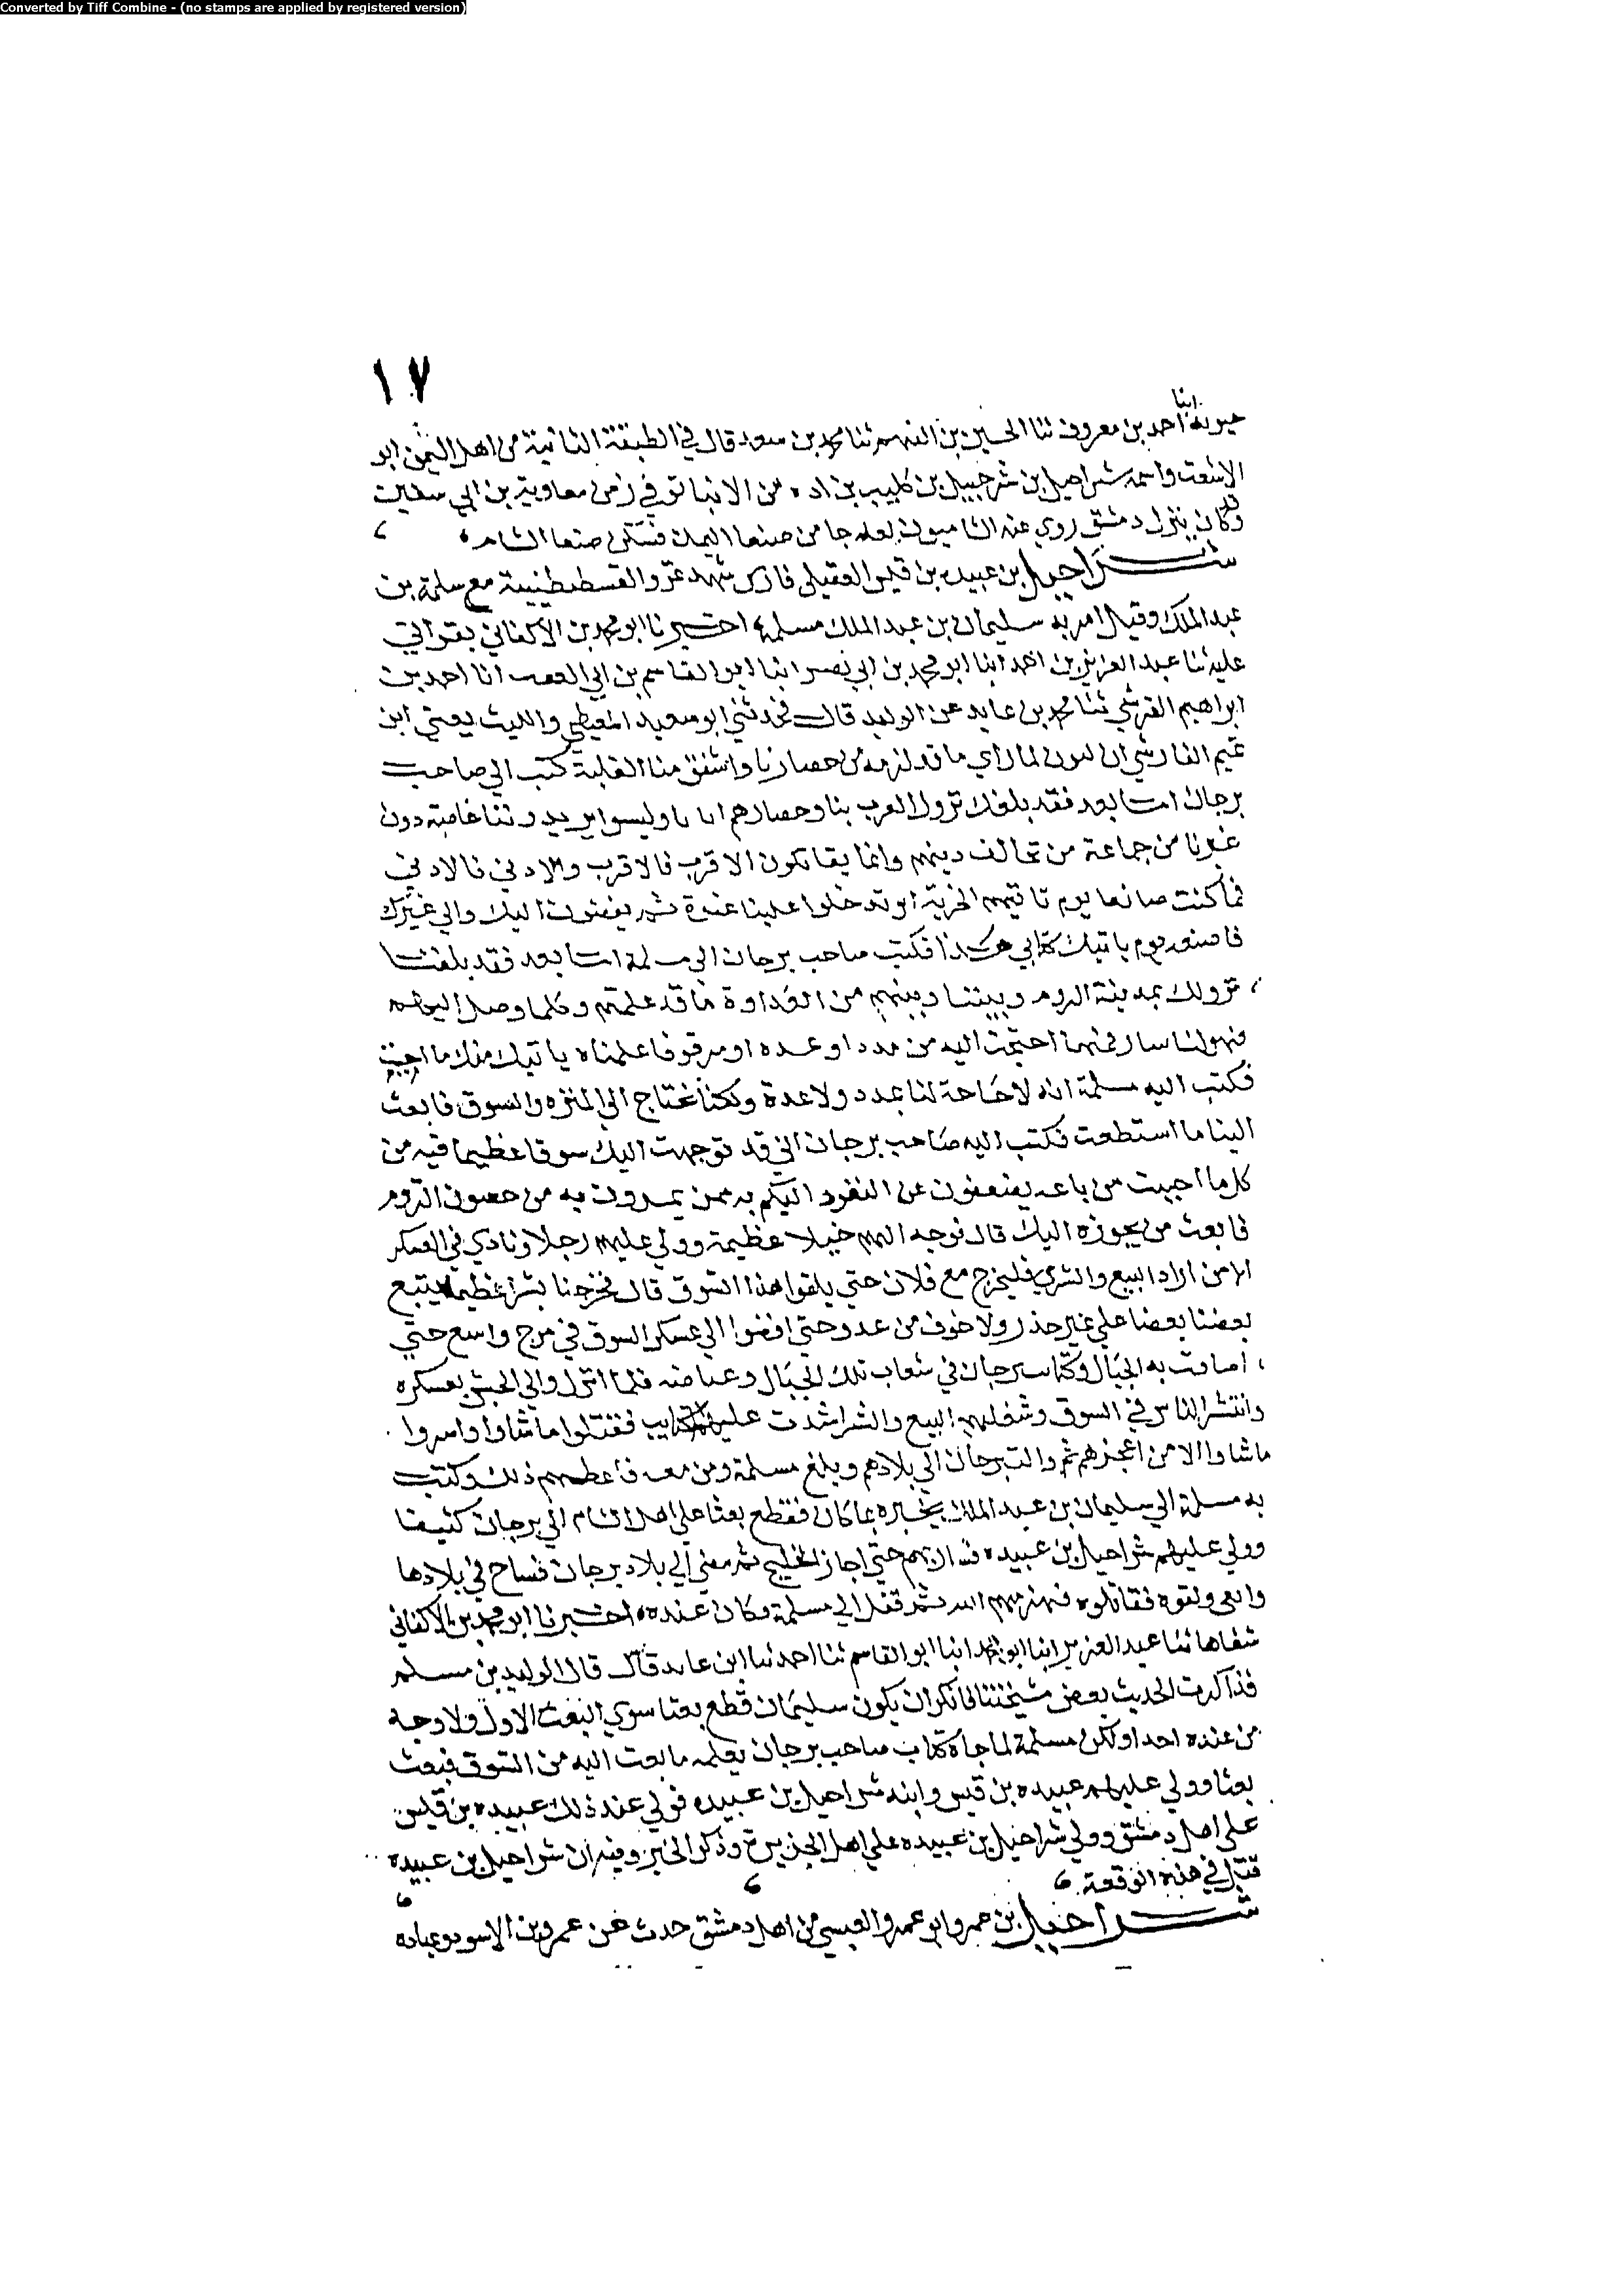 Converted by Tiff Combine - (no stamps are applied by registered version)
١٧
انبا
حيويه احمد بن معروف ثنا الحسين بن الفهم ثنا محمد بن سعد قال في الطبقة الثانية من اهل اليمن ابو
الاشعث واسمه شراحيل بن شرحبيل بن كليب بن اده من الابنا توفي زمن معاوية بن ابي سفين
وقد كان ينزل دمشق روي عنه الشاميون لعله جا من صنعا اليمن فسكن صنعا الشام
شراحيل بن عبيده بن قيس العقيلي فارس شهد غزو القسطنطينية مع مسلمة بن
عبد الملك وقيل امر به سليمان بن عبد الملك مسلمة اخبرنا ابو محمد بن الاكفاني بقراتي
عليه ثنا عبد العزيز بن احمد ابنا ابو محمد بن ابي نصر ابنا ابو القاسم بن ابي العقب انا احمد بن
ابراهيم القرشي ثنا محمد بن عايد عن الوليد قال فحدثني ابو سعيد المعيطي والليث يعني ابن
تميم الفارسي ان ليون لما راي ما قد لزمه من حصارنا واشفق من الغلبة كتب الي صاحب
برجان اما بعد فقد بلغك نزول العرب بنا وحصارهم ايانا وليسوا يريدوننا خاصة دون
غيرنا من جماعة من يخالف دينهم وانما يقاتلون الاقرب فالاقرب والادني فالادني
فما كنت صانعا يوم تاتيهم الجزية او يدخلوا علينا عنوة ثم يفضون اليك والي غيرك
فاصنعه يوم ياتيك كتابي هذا فكتب صاحب برجان الي مسلمة اما بعد فقد بلغنا
نزولك بمدينة الروم وبيننا وبينهم من العداوة ما قد علمتم وكلما وصل اليهم
فهو لنا سار فمهما احتجت اليه من مدد او عده او مرفق فاعلمناه ياتيك منك ما احببت
فكتب اليه مسلمة انه لا حاجة لنا بمدد ولا عدة ولكنا نحتاج الي الميره والسوق فابعث
الينا ما استطعت فكتب اليه صاحب برجان اني قد توجهت اليك سوقا عظيما فيه من
كل ما احببت من باعه يضعفون عن النفوذ اليكم به ممن يمرون به من حصون الروم
فابعث من يجوزه اليك قال فوجه اليهم خيلا عظيمة وولي عليهم رجلا ونادي في العسكر
الا من اراد البيع والشري فليخرج مع فلان حتي يلقوا هذا السوق قال فخرجنا بشرا عظيما يتبع
بعضنا بعضا علي غير حذر ولا خوف من عدو حتي افضوا الي عسكر السوق في مرج واسع حتي
احاطت به الجبال وكتايب برجان في شعاب تلك الجبال وغياضه فلما انزل والي الجيش بعسكره
وانتشر الناس في السوق وشغلهم البيع والشرا شدت عليهم الكتايب فقتلوا ما شاوا واسروا
ما شاوا الا من اعجزهم ثم والت برجان الي بلادهم وبلغ مسلمة ومن معه فاعظمهم ذلك وكتب
به مسلمة الي سليمان بن عبد الملك يخبره بما كان فقطع بعثا علي اهل الشام الي برجان كثيفا
وولي عليهم شراحيل بن عبيده فسار بهم حتي اجاز الخليج ثم مضي الي بلاد برجان فساح في بلادها
ولقوه فقاتلوه فهزمهم الله ثم قفل الي مسلمة وكان عنده اخبرنا ابو محمد بن الاكفاني
شفاها ثنا عبد العزيز ابنا ابو محمد ابنا ابو القاسم ثنا احمد ثنا ابن عايد قال قال الوليد بن مسلم
فذاكرت الحديث بعض مشيختنا فانكر ان يكون سليمان قطع بعثا سوي البعث الاول ولا وجه
من عنده احدا ولكن مسلمة لما جاه كتاب صاحب برجان يعلمه ما بعث اليه من السوق فبعث
بعثا وولي عليهم عبيده بن قيس وابنه شراحيل بن عبيده فولي عند ذلك عبيده بن قيس
علي اهل دمشق وولي شراحيل بن عبيده علي اهل الجزيرة وذكر الخبر وفيه ان شراحيل بن عبيده
قتل في هذه الوقعة
شراحيل بن عمرو ابو عمرو العبسي من اهل دمشق حدث عن عمرو بن الاسود وعباده